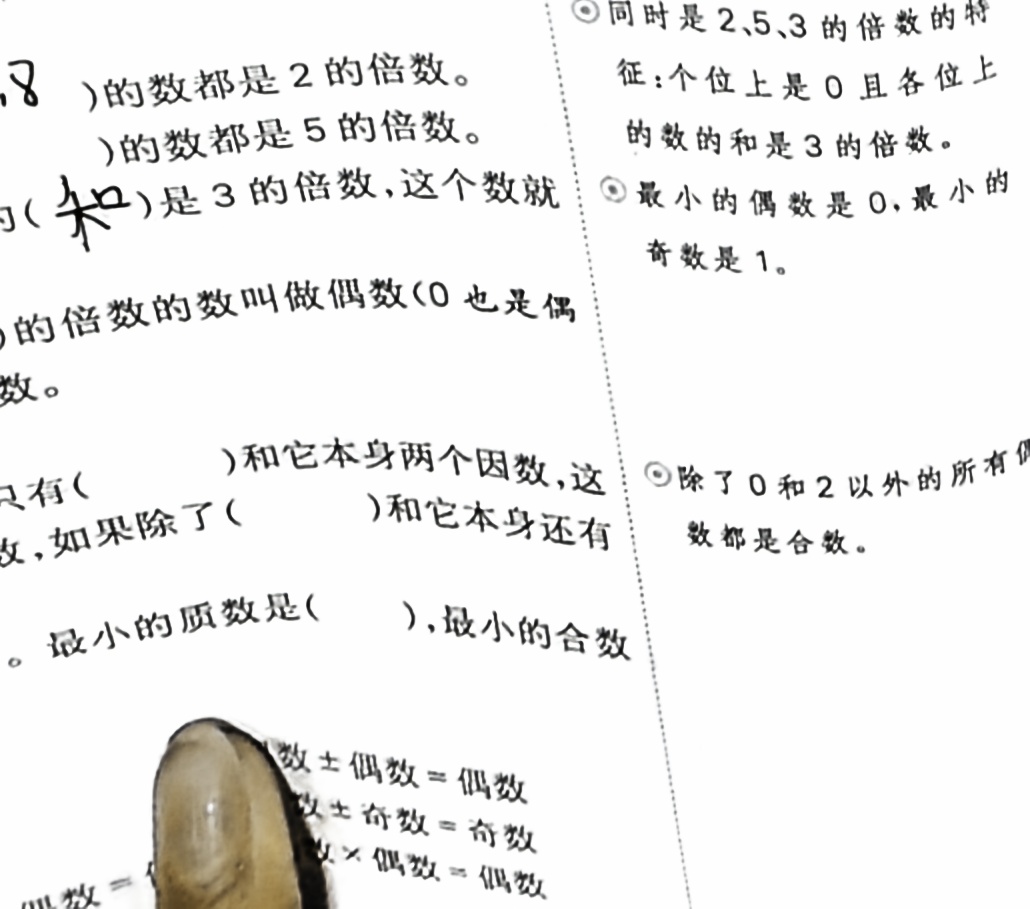 .8 )的数都是2的倍数。
)的数都是5的倍数。
(和)是3的倍数,这个数就
)的倍数的数叫做偶数(0也是偶
数。
只有( )和它本身两个因数,这
,如果除了( )和它本身还有
。最小的质数是( ),最小的合数
数±偶数=偶数
数±奇数=奇数
数×偶数=偶数
偶数=
同时是2、5、3的倍数的特
征:个位上是0且各位上
的数的和是3的倍数。
最小的偶数是0,最小的
奇数是1。
除了0和2以外的所有偶
数都是合数。